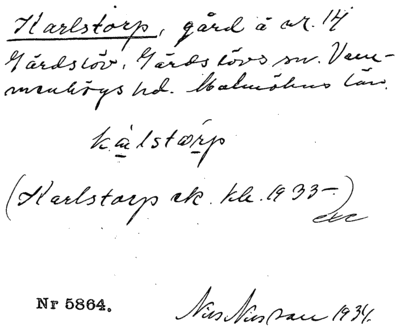 Karlstorp, gård å nr. 14
Gärdslöv, Gärdslövs sn. Vem-
menhögs hd. Malmöhus län.
kalstɷrp
(Karlstorp ek. kb. 1933-)
Nr 5864.
Nils Nilsson 1934.